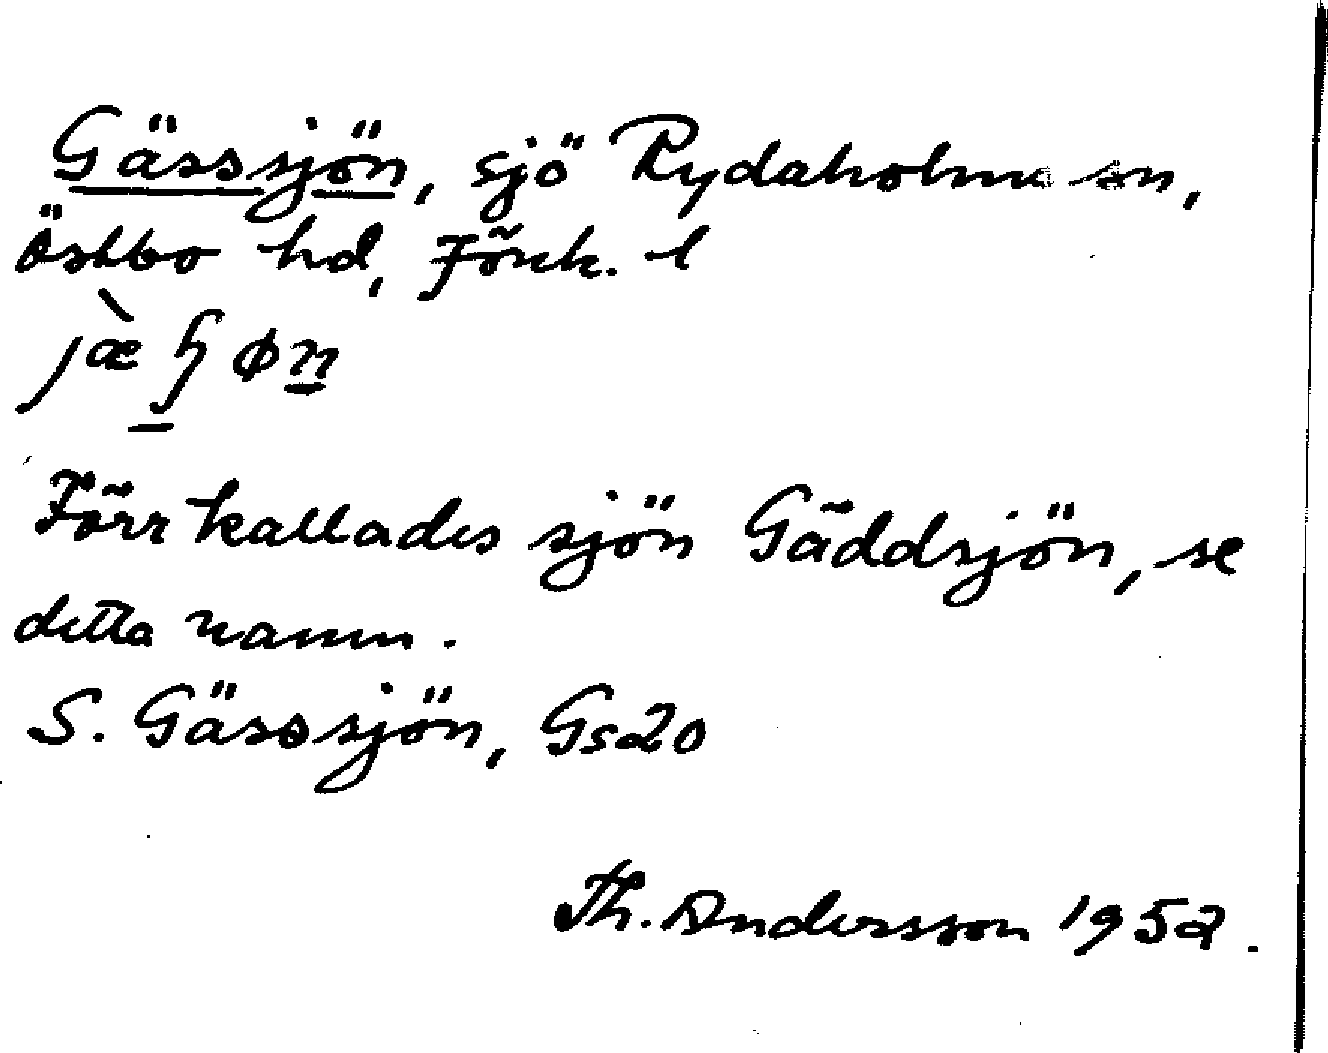 Gässsjön, sjö Rydaholms sn,
Östbo hd, Jönk. l
Förr kallades sjön Gäddsjön, se
detta namn.
S. Gässsjön, Gs20
Th. Andersson 1952.